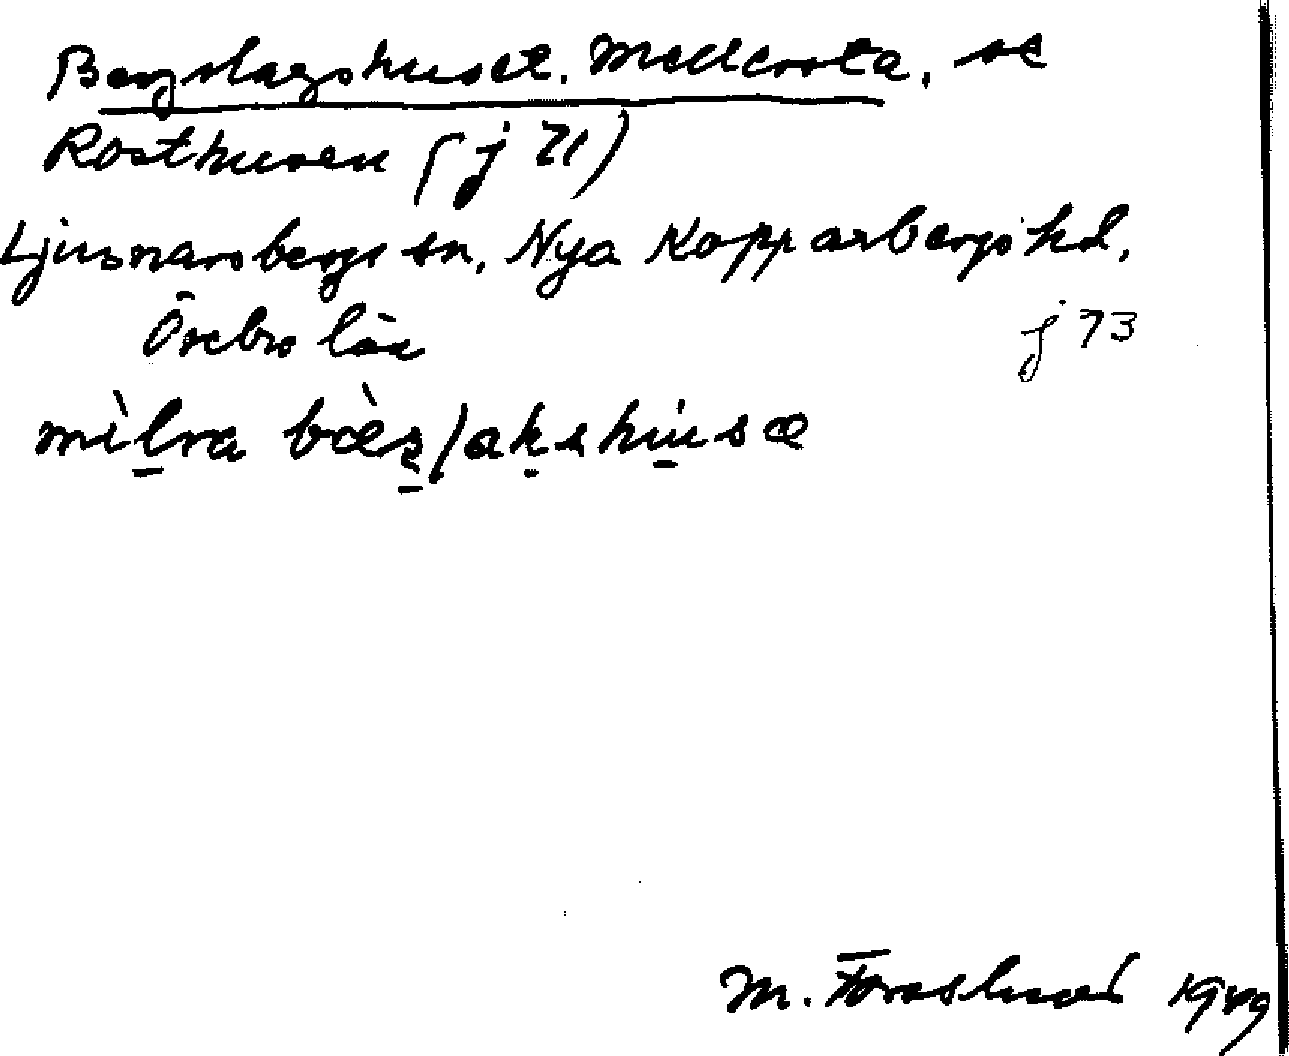 Bergslagshuset. Mellersta, se
Rosthusen (j 71)
Ljusnarsbergs sn, Nya Kopparbergs hd,
Örebro län
j 73
mìlra bæ̀ş/akshusæ
M. Forslund 1949